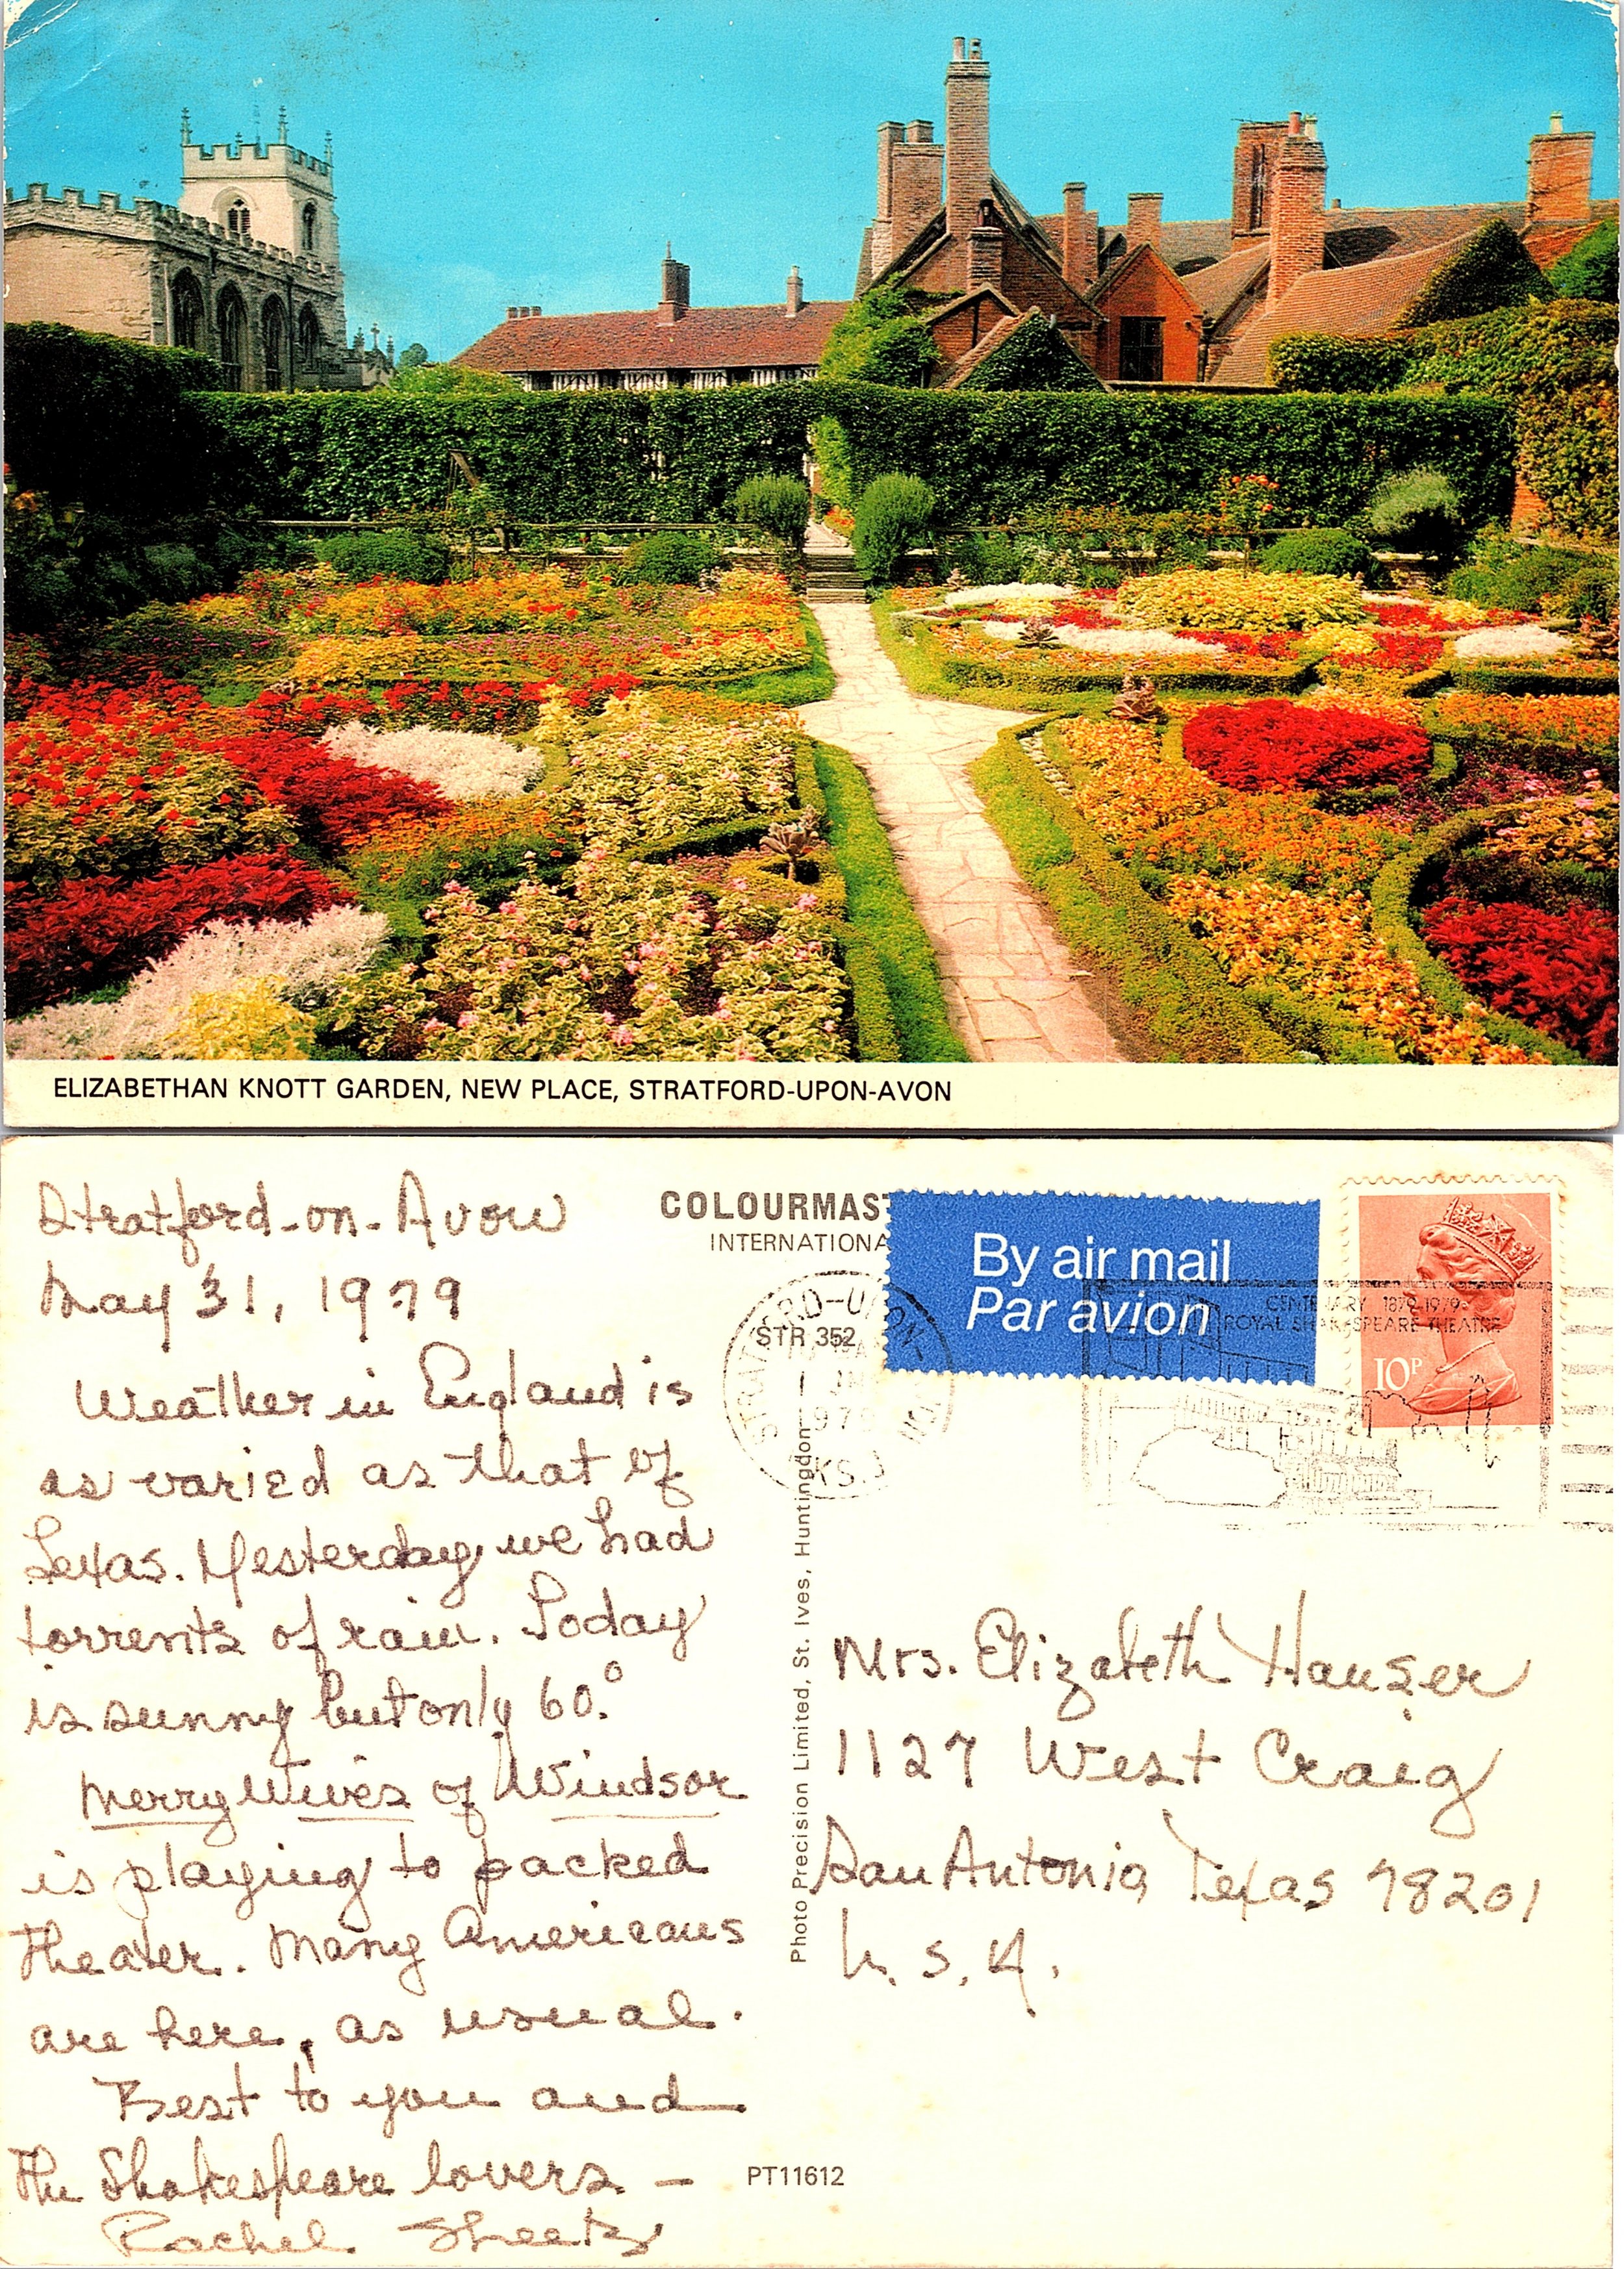 ELIZABETHAN KNOTT GARDEN, NEW PLACE, STRATFORD-UPON-AVON
Stratford-on-Avon
May 31, 1979
Weather in England is
as varied as that of
Texas. Yesterday we had
torrents of rain. Today
is sunny but only 60.°
Merry Wives of Windsor
is playing to packed
theater. Many Americans
are here, as usual.
Best to you and
the Shakespeare lovers —
Rachel Sheets
COLOURMAST
INTERNATIONA
STR 352
By air mail
Par avion
CENTENARY 1879-1979
ROYAL SHAKESPEARE THEATRE
10P
STRATFORD-UPON-
1 JN
1979
Photo Precision Limited, St. Ives, Huntingdon
Mrs. Elizabeth Hauser
1127 West Craig
San Antonio, Texas 78201
U.S.A.
PT11612